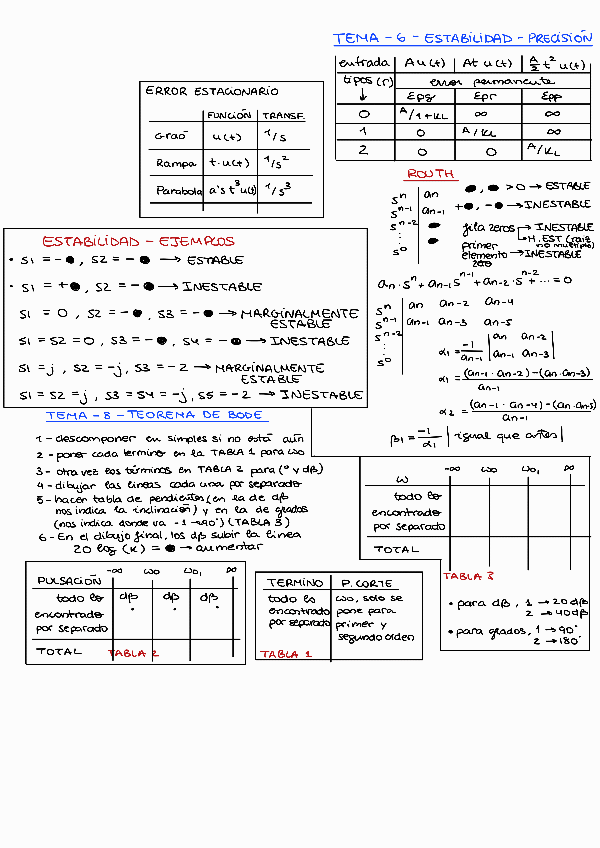 TEMA - 6 - ESTABILIDAD - PRECISIÓN
entrada | A u(t) | At u(t) | A/2 t² u(t)
tipos (r) ↓ | error permanente
Epg | Epr | Epp
0 | A/1+KL | ∞ | ∞
1 | 0 | A/KL | ∞
2 | 0 | 0 | A/KL
ERROR ESTACIONARIO
FUNCIÓN | TRANSF.
u(t) | 1/s
Rampa | t·u(t) | 1/s²
Parabola | a's t³ u(t) | 1/s³
ROUTH
sⁿ | an
sⁿ⁻¹ | an-1
sⁿ⁻²
⋮
s⁰
●, ● > 0 → ESTABLE
+●, -● → INESTABLE
fila zeros → INESTABLE
→ M. EST (raiz no multiple)
primer elemento zero → INESTABLE
an · sⁿ + an-1 sⁿ⁻¹ + an-2 · sⁿ⁻² + ... = 0
sⁿ | an an-2 an-4
sⁿ⁻¹ | an-1 an-3 an-5
sⁿ⁻²
⋮
s⁰
α1 = -1/an-1 | an an-2 | an-1 an-3 |
α1 = (an-1 · an-2) - (an · an-3) / an-1
α2 = (an-1 · an-4) - (an · an-5) / an-1
β1 = -1/α1 | igual que antes |
ESTABILIDAD - EJEMPLOS
• S1 = -●, S2 = -● → ESTABLE
• S1 = +●, S2 = -● → INESTABLE
S1 = 0, S2 = -●, S3 = -● → MARGINALMENTE ESTABLE
S1 = S2 = 0, S3 = -●, S4 = -● → INESTABLE
S1 = j, S2 = -j, S3 = -2 → MARGINALMENTE ESTABLE
S1 = S2 = j, S3 = S4 = -j, S5 = -2 → INESTABLE
TEMA - 8 - TEOREMA DE BODE
1 - descomponer en simples si no está aún
2 - poner cada termino en la TABLA 1 para wo
3 - otra vez los términos en TABLA 2 para (° y dB)
4 - dibujar las lineas cada una por separado
5 - hacer tabla de pendientes (en la de dB
nos indica la inclinación) y en la de grados
(nos indica donde va - 1 → 90°) (TABLA 3)
6 - En el dibujo final, los dB subir la linea
20 log (K) = ● → aumentar
w | -∞ | wo | wo1 | ∞
todo lo
encontrado
por separado
TOTAL
TABLA 3
• para dB, 1 → 20dB
2 → 40dB
• para grados, 1 → 90°
2 → 180°
PULSACIÓN | -∞ | wo | wo1 | ∞
todo lo | dB | dB | dB
encontrado | ° | ° | °
por separado
TOTAL
TABLA 2
TERMINO | P. CORTE
todo lo | wo, solo se
encontrado | pone para
por separado | primer y
segundo orden
TABLA 1